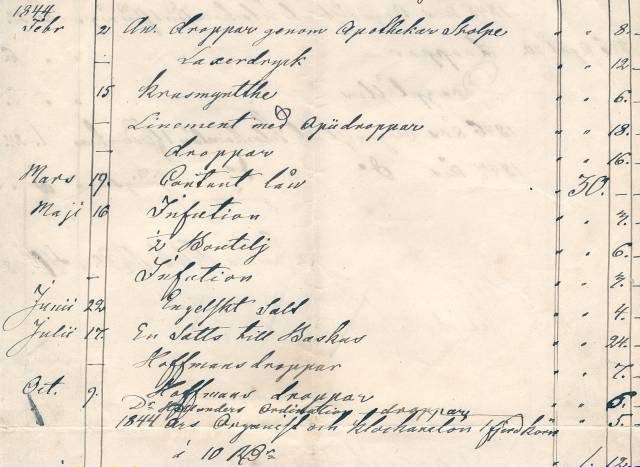 1844
Febr 2 An. droppar genom Apothekar Stolpe " " 8.
— Laxerdryck " " 12
15 Krusmynthe " " 6.
— Liniment med Opiidroppar " " 18.
— droppar " " 16.
Mars 19. Contant lån " 30. —
Maji 16 Infusion " " 7.
½ Boutelj " " 6.
— Infusion " " 7.
Junii 22 Engelskt Salt " " 4.
Julii 17. En Satts till " " 24.
— Hoffmansdroppar " " 7.
Oct. 9. Hoffmans droppar " " 6.
Ordination droppar " " 5.
1844 års Organist och Klockarelön
á 10 Rdr 12